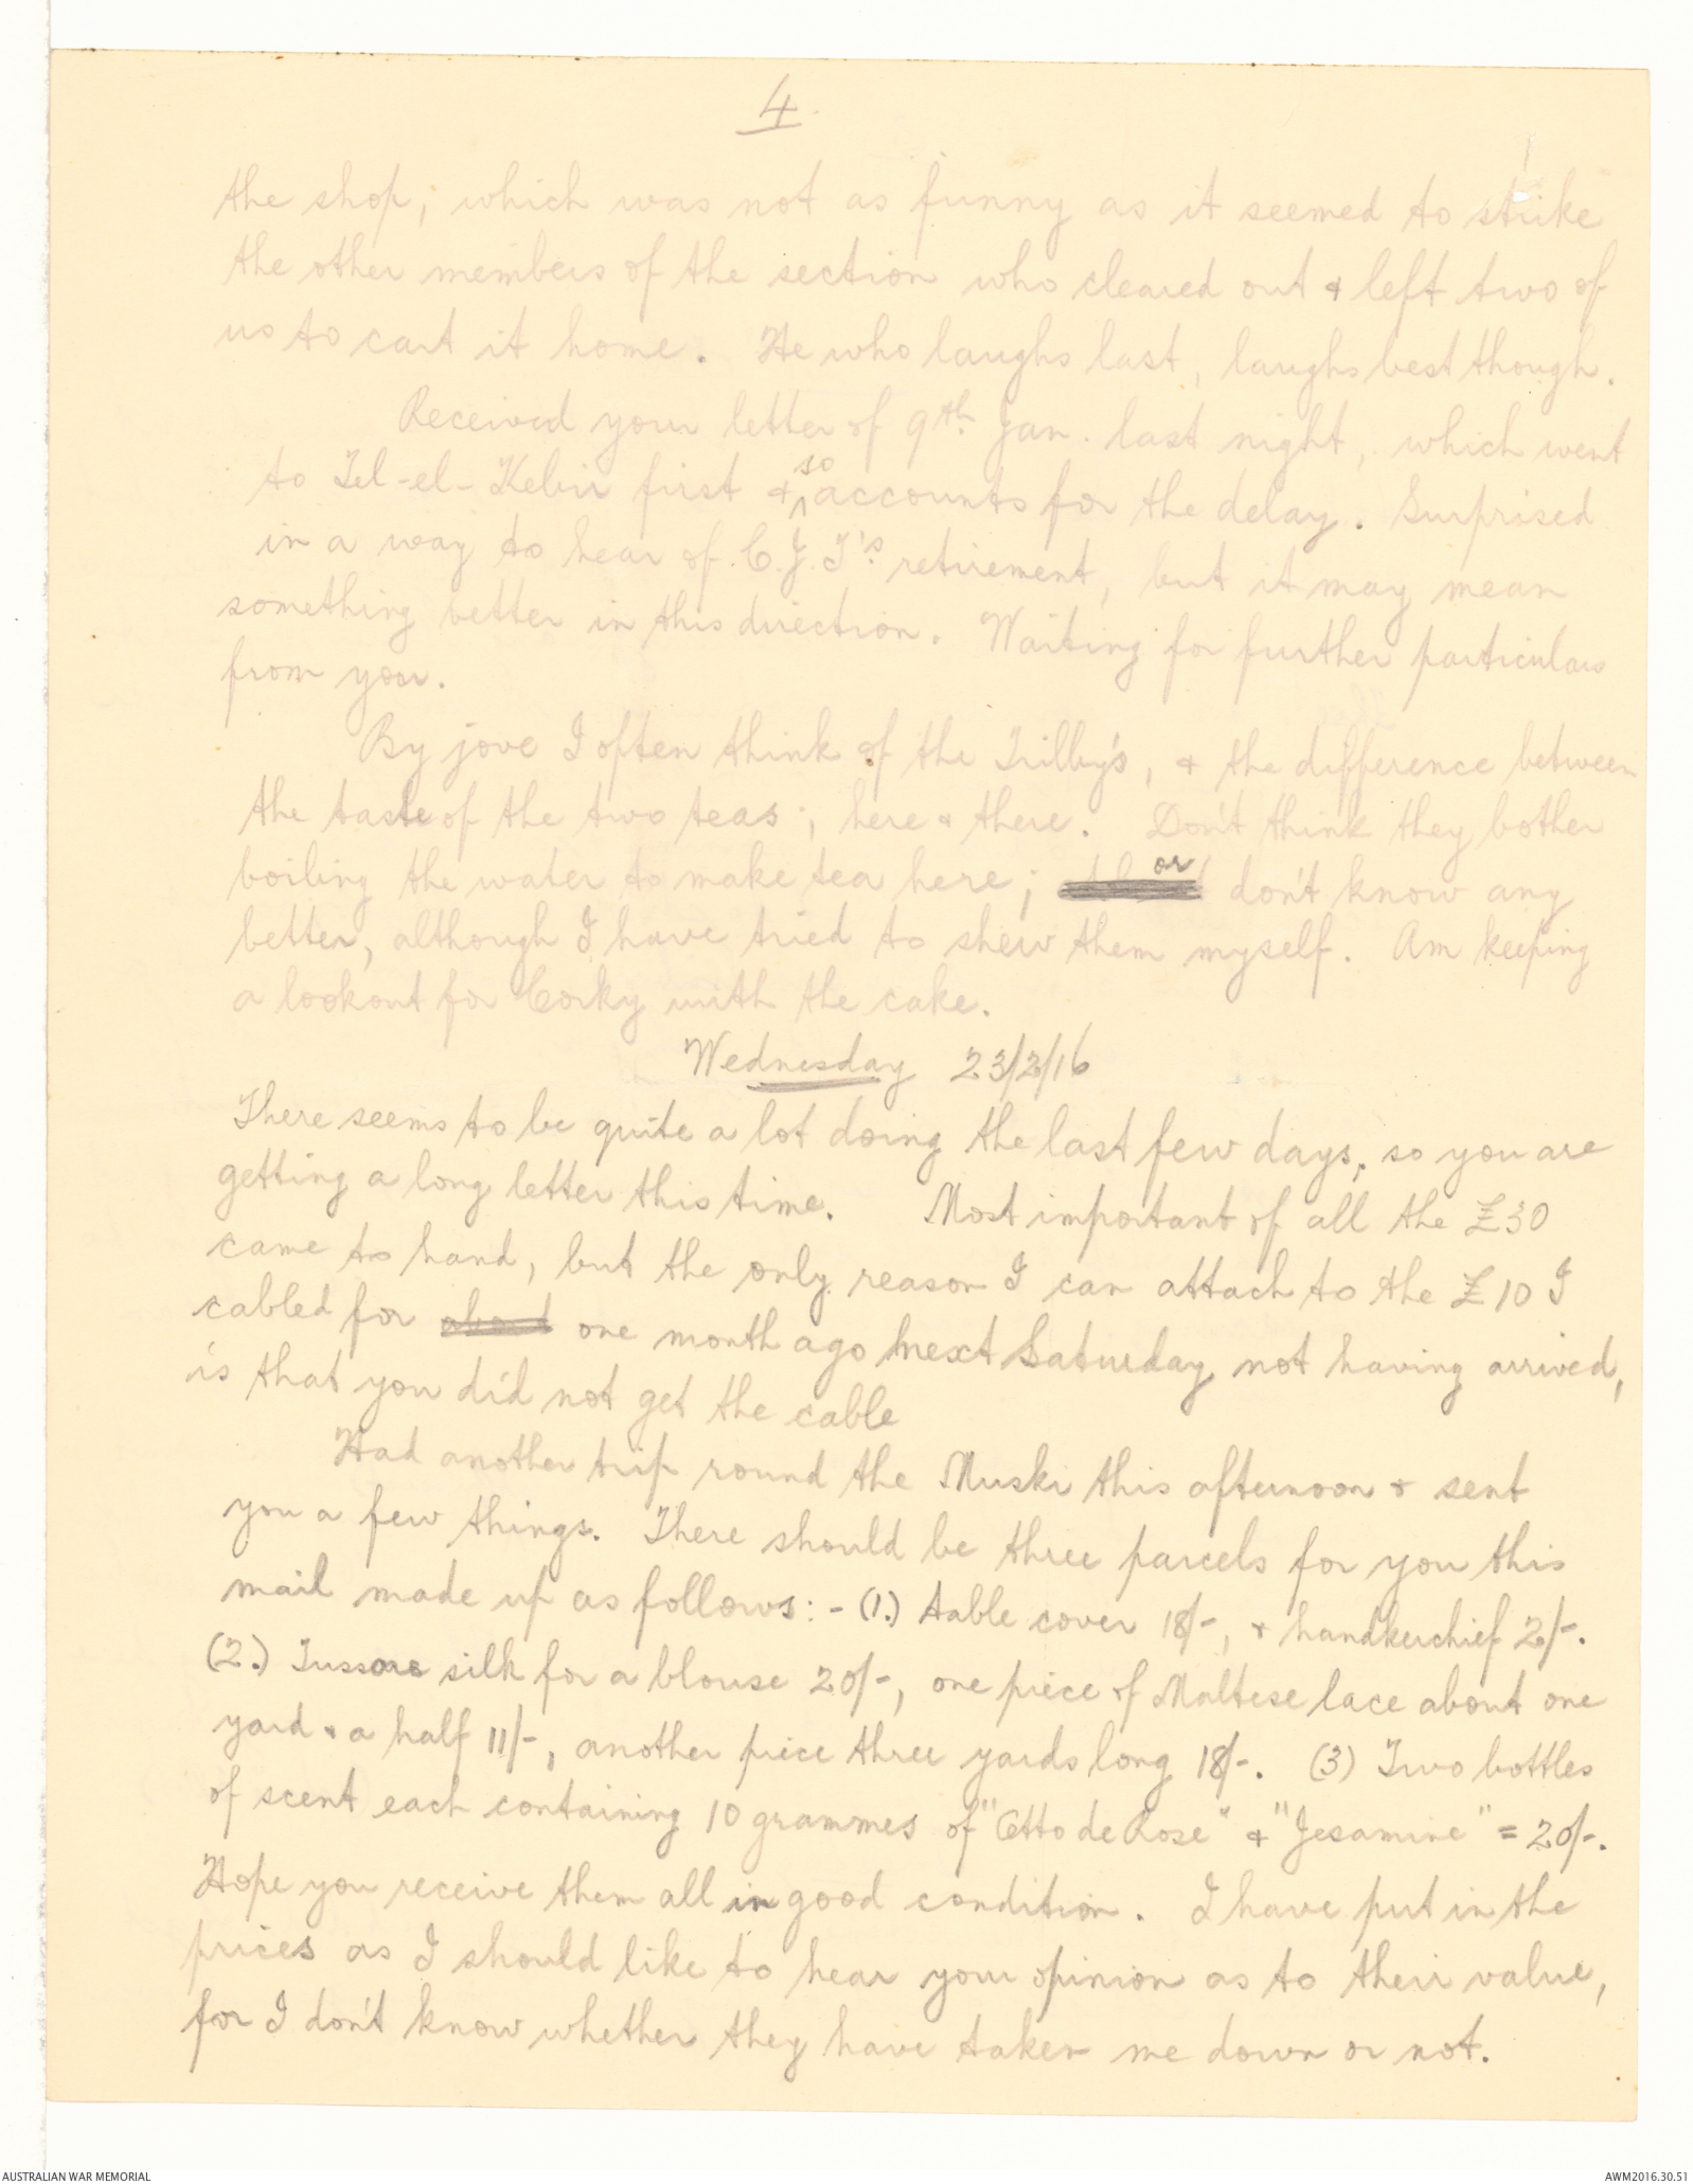 4.
the shop, which was not as funny as it seemed to strike
the other members of the section who cleared out & left two of
us to cart it home. He who laughs last, laughs best though.
Received your letter of 9th. Jan. last night, which went
to Tel-el-Kebir first & so accounts for the delay. Surprised
in a way to hear of C.J.T's. retirement, but it may mean
something better in this direction. Waiting for further particulars
from you.
By jove I often think of the Trilby's, & the difference between
the taste of the two teas; here & there. Don't think they bother
boiling the water to make tea here; or don't know any
better, although I have tried to shew them myself. Am keeping
a lookout for Corky with the cake.
Wednesday 23/2/16
There seems to be quite a lot doing the last few days, so you are
getting a long letter this time. Most important of all the £30
came to hand, but the only reason I can attach to the £10 I
cabled for about one month ago next Saturday not having arrived,
is that you did not get the cable
Had another trip round the Muski this afternoon & sent
you a few things. There should be three parcels for you this
mail made up as follows: - (1.) table cover 18/-, & handkerchief 2/-.
(2.) Tussore silk for a blouse 20/-, one piece of Maltese lace about one
yard & a half 11/-, another piece three yards long 18/-. (3) Two bottles
of scent each containing 10 grammes of "Otto de Rose" & "Jesamine" = 20/-.
Hope you receive them all in good condition. I have put in the
prices as I should like to hear your opinion as to their value,
for I don't know whether they have taken me down or not.
AUSTRALIAN WAR MEMORIAL
AWM2016.30.51